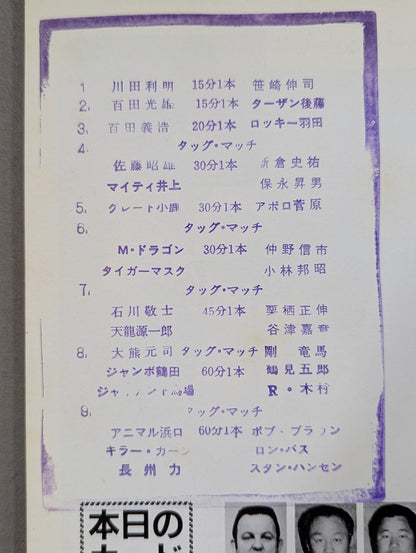 1. 川田利明 15分1本 笹崎伸司
2. 百田光雄 15分1本 ターザン後藤
3. 百田義浩 20分1本 ロッキー羽田
4. タッグ・マッチ
佐藤昭雄 30分1本 新倉史祐
マイティ井上 保永昇男
5. グレート小鹿 30分1本 アポロ菅原
6. タッグ・マッチ
M・ドラゴン 30分1本 仲野信市
タイガーマスク 小林邦昭
7. タッグ・マッチ
石川敬士 45分1本 栗栖正伸
天龍源一郎 谷津嘉章
8. 大熊元司 タッグ・マッチ 剛竜馬
ジャンボ鶴田 60分1本 鶴見五郎
ジャイアント馬場 R・木村
9. タッグ・マッチ
アニマル浜口 60分1本 ボブ・ブラウン
キラー・カーン ロン・バス
長州力 スタン・ハンセン
本日の